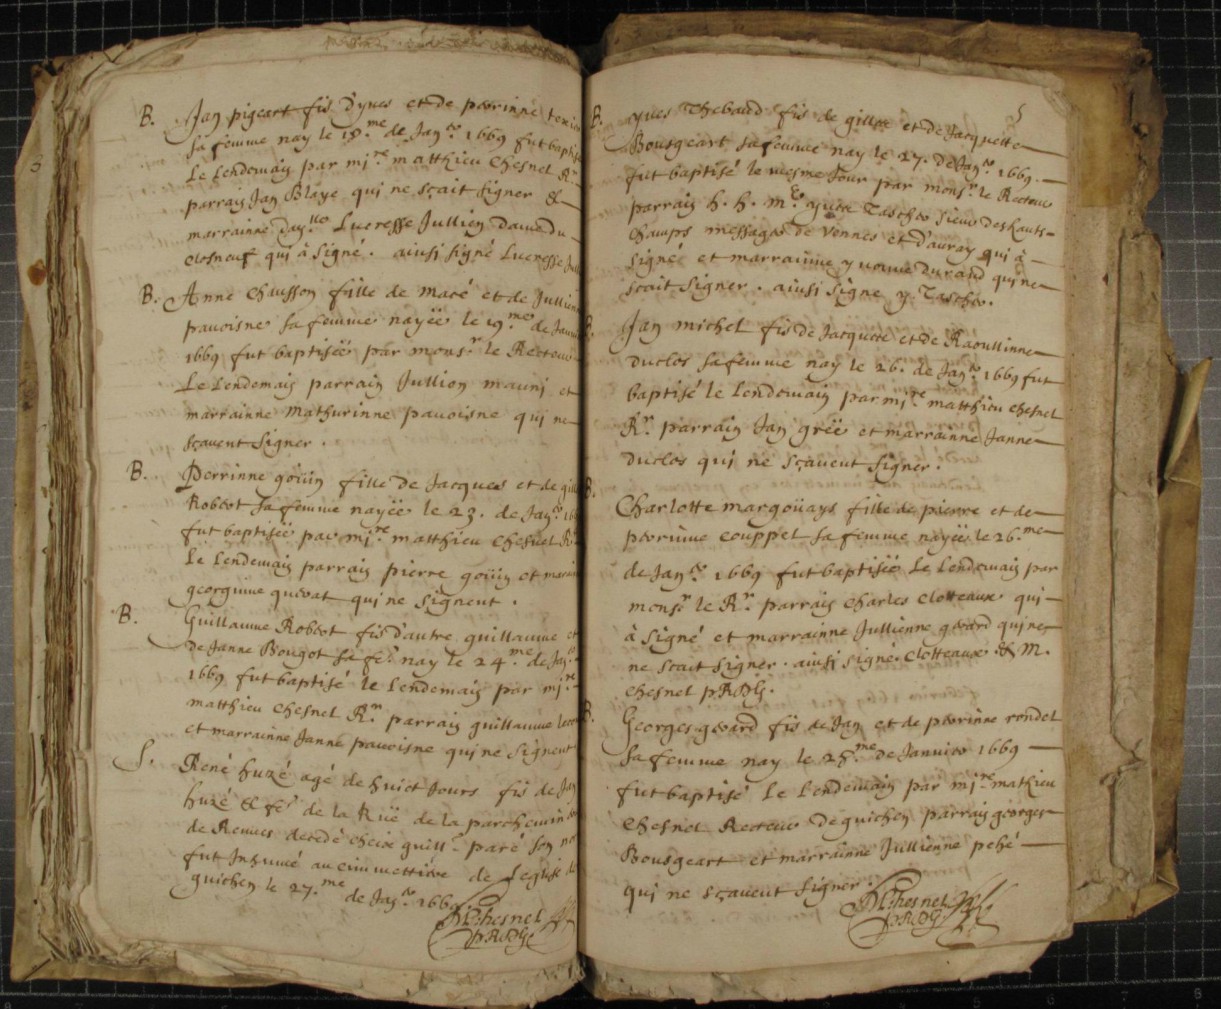 B. Jan pigeart fis d'yves et de perrinne
sa femme nay le 18.me de Janr. 1669 fut baptisé
Le Lendemain par mire matthieu Chesnel Rr.
parrain Jan Blaye qui ne sçait signer &
marrainne dalle Lucresse Jullien dame du
closneuf qui à signé. ainsi signé Lucresse Jul
B. Anne Chausson fille de macé et de Jullienne
pavoisne sa femme nayëe le 19.me de Janv
1669 fut baptiséë par monsr. le Recteur
Le Lendemain parrain Jullien mauni et
marrainne mathurinne pavoisne qui ne
sçavent signer.
B. Perrinne goüin fille de Jacques et de gill
Robert sa femme nayëe le 23. de Janr. 166
fut baptisëe par mire matthieu Chesnel Rr
Le Lendemain parrain pierre goüin et marrain
georginne quevat qui ne signent.
B. Guillaume Robert fis d'autre guillaume et
de Janne Bougot sa fe. nay le 24.me de Janr.
1669 fut baptisé le Lendemain par mire
matthieu chesnel Rr. parrain guillaume
et marrainne Janne pavoisne qui ne signent
S. René huzé agé de huict Jours fis de Jan
huzé & fe. de la Ruë de la parchemin
de Rennes decedé cheix guill. paré son no
fut Inhumé au cimmettiere de Leglise de
guichen le 27.me de Janr. 1669
M Chesnel
pRDG
5
B. yves Thebaud fis de gilles et de Jacquette
Bougeart sa femme nay le 27. de Janr. 1669.
fut baptisé le mesme Jour par monsr. le Recteur
parrain h. h. me. yves Taschee sieur des hauts-
champs messager de Vennes et d'auray qui à
signée et marrainne yvonne durand qui ne
scait signer. ainsi signe y. Taschee.
B. Jan michel fis de Jacques et de Raoullinne
duclos sa femme nay le 26. de Janr. 1669 fut
baptisé le Lendemain par mire matthieu chesnel
Rr. parrain Jan greë et marrainne Janne
duclos qui ne sçavent signer.
B. Charlotte margoüays fille de pierre et de
perrinne couppel sa femme nayëe le 26.me
de Janr. 1669 fut baptiséë Le Lendemain par
monsr. le Rr. parrain Charles Clotteaux qui
à signé et marrainne Jullienne gerard qui ne
ne scait signer. ainsi signé Clotteaux & M.
chesnel pRDG.
B. Georges gerard fis de Jan et de perrinne rondel
sa femme nay le 28.me de Janvier 1669
fut baptisé Le Lendemain par mire mathieu
Chesnel Recteur de guichen parrain georges
Bougeart et marrainne Jullienne pehé
qui ne sçavent signer.
M Chesnel
pRDG